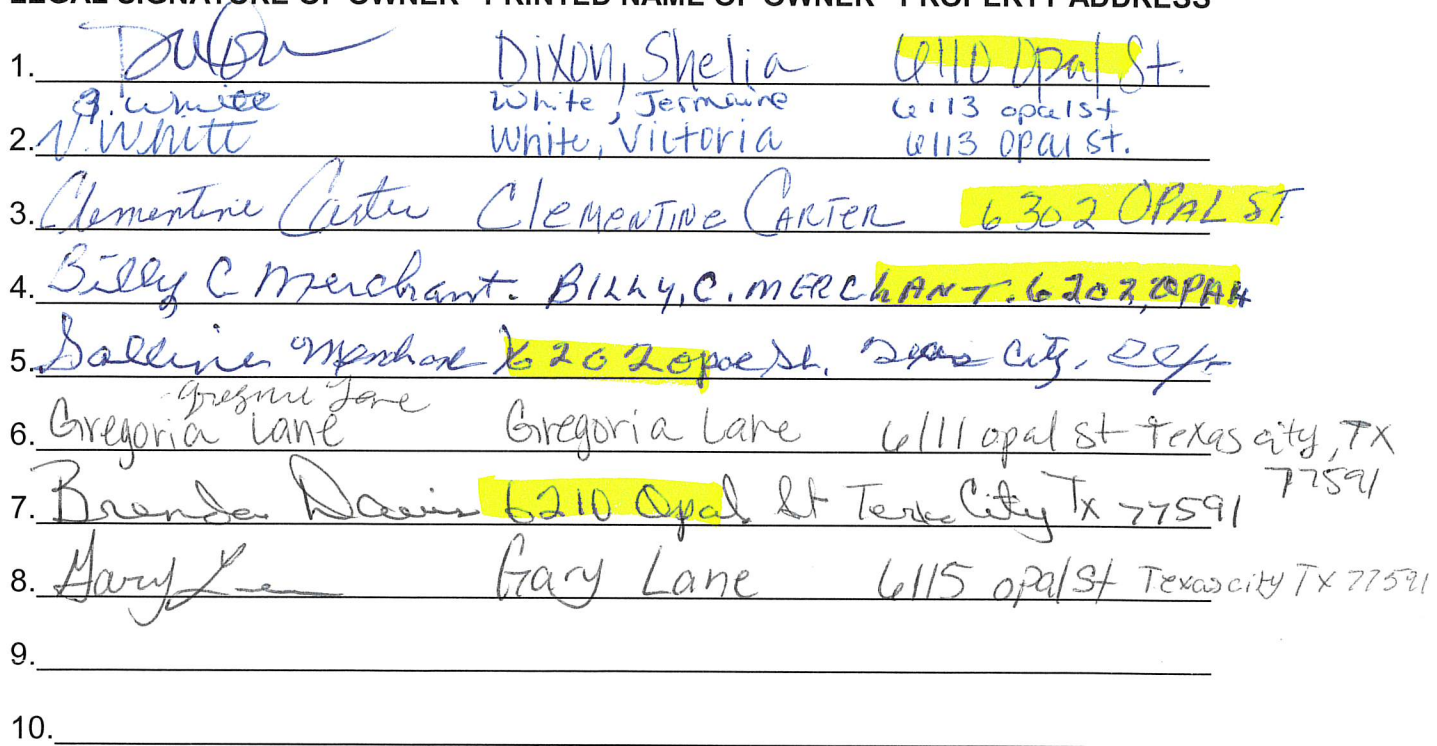 LEGAL SIGNATURE OF OWNER PRINTED NAME OF OWNER PROPERTY ADDRESS
1. Dixon Dixon, Shelia 6110 Opal St.
J. White White, Jermaine 6113 opal st
2. V. White White, Victoria 6113 Opal St.
3. Clementine Carter CLEMENTINE CARTER 6302 OPAL ST.
4. Billy C Merchant. BILLY, C. MERCHANT. 6202, OPAL
5. Merchant 6202 opal St. Texas City,
Gregoria Lane
6. Gregoria Lane Gregoria Lane 6111 opal st Texas city, TX
77591
7. Brenda Davis 6210 Opal St Texas City Tx 77591
8. Gary Lane Gary Lane 6115 opal St Texas city TX 77591
9.
10.